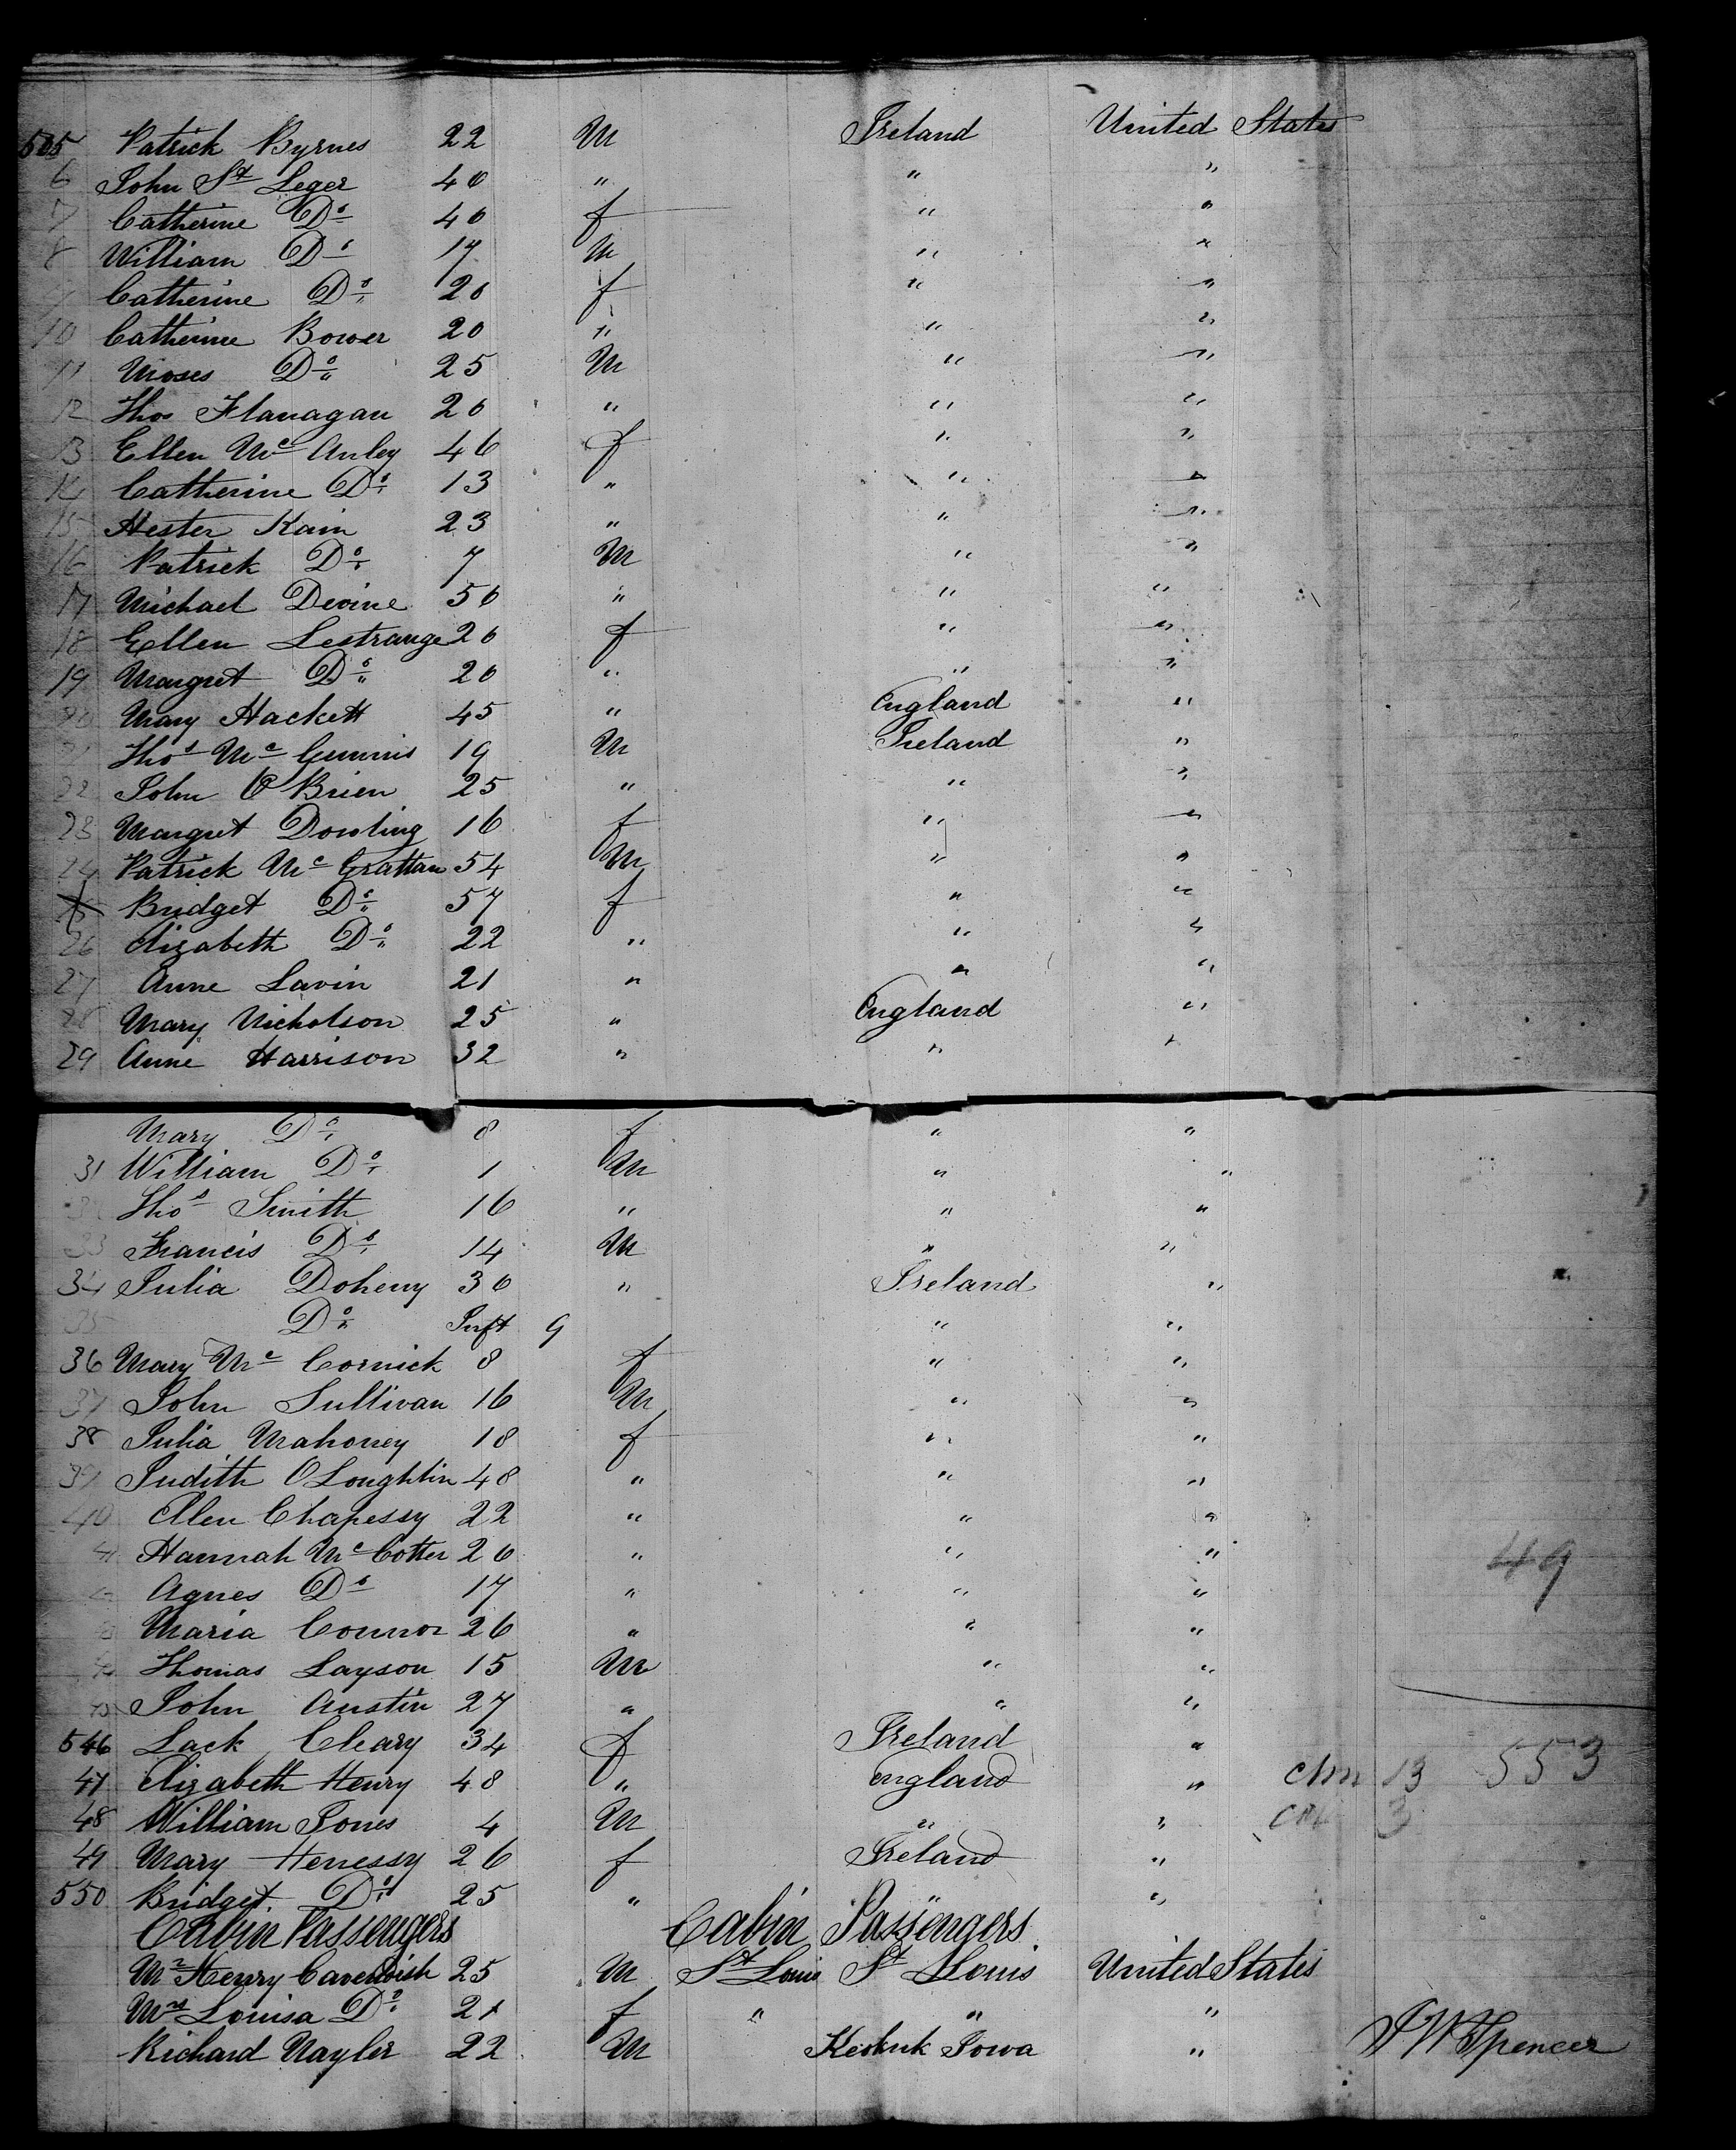 505 Patrick Byrnes 22 M Ireland United States
6 John St Leger 40 " " "
7 Catherine Do 40 f " "
8 William Do 17 M " "
9 Catherine Do 20 f " "
10 Catherine Bower 20 " " "
11 Moses Do 25 M " "
12 Thos Flanagan 20 " " "
13 Ellen Mc Auley 46 f " "
14 Catherine Do 13 " " "
15 Hester Kain 23 " " "
16 Patrick Do 7 M " "
17 Michael Devine 50 " " "
18 Ellen Lestrange 20 f " "
19 Margret Do 20 " " "
20 Mary Hackett 45 " England "
21 Thos Mc 19 M Ireland "
22 John O Brien 25 " " "
23 Margret Dowling 16 f " "
24 Patrick Mc Grattan 54 M " "
Bridget Do 57 f " "
26 Elizabeth Do 22 " " "
27 Anne Lavin 21 " " "
28 Mary Nicholson 25 " England "
29 Anne Harrison 32 " " "
Mary Do 8 f " "
31 William Do 1 M " "
Thos Smith 16 " " "
33 Francis Do 14 M " "
34 Julia Doheny 30 " Ireland "
35 Do Inft 9 " "
36 Mary Mc Cornick 8 f " "
37 John Sullivan 16 M " "
38 Julia Mahoney 18 f " "
39 Judith O Loughlin 48 " " "
40 Ellen Chapessy 22 " " "
41 Hannah Mc Cotter 20 " " " 49
Agnes Do 17 " " "
Maria Connor 26 " " "
Thomas Layson 15 M " "
45 John Austin 27 " " "
546 Jack Cleary 34 f Ireland "
47 Elizabeth Henry 48 " England " chn 13 553
48 William Jones 4 M " " 3
49 Mary Henessy 26 f Ireland "
550 Bridget Do 25 " " "
Cabin Passengers Cabin Passengers
Mr Henry Cavendish 25 M St Louis St Louis United States
Mrs Louisa Do 21 f " " "
Richard Nayler 22 M Keokuk Iowa " J W Spencer